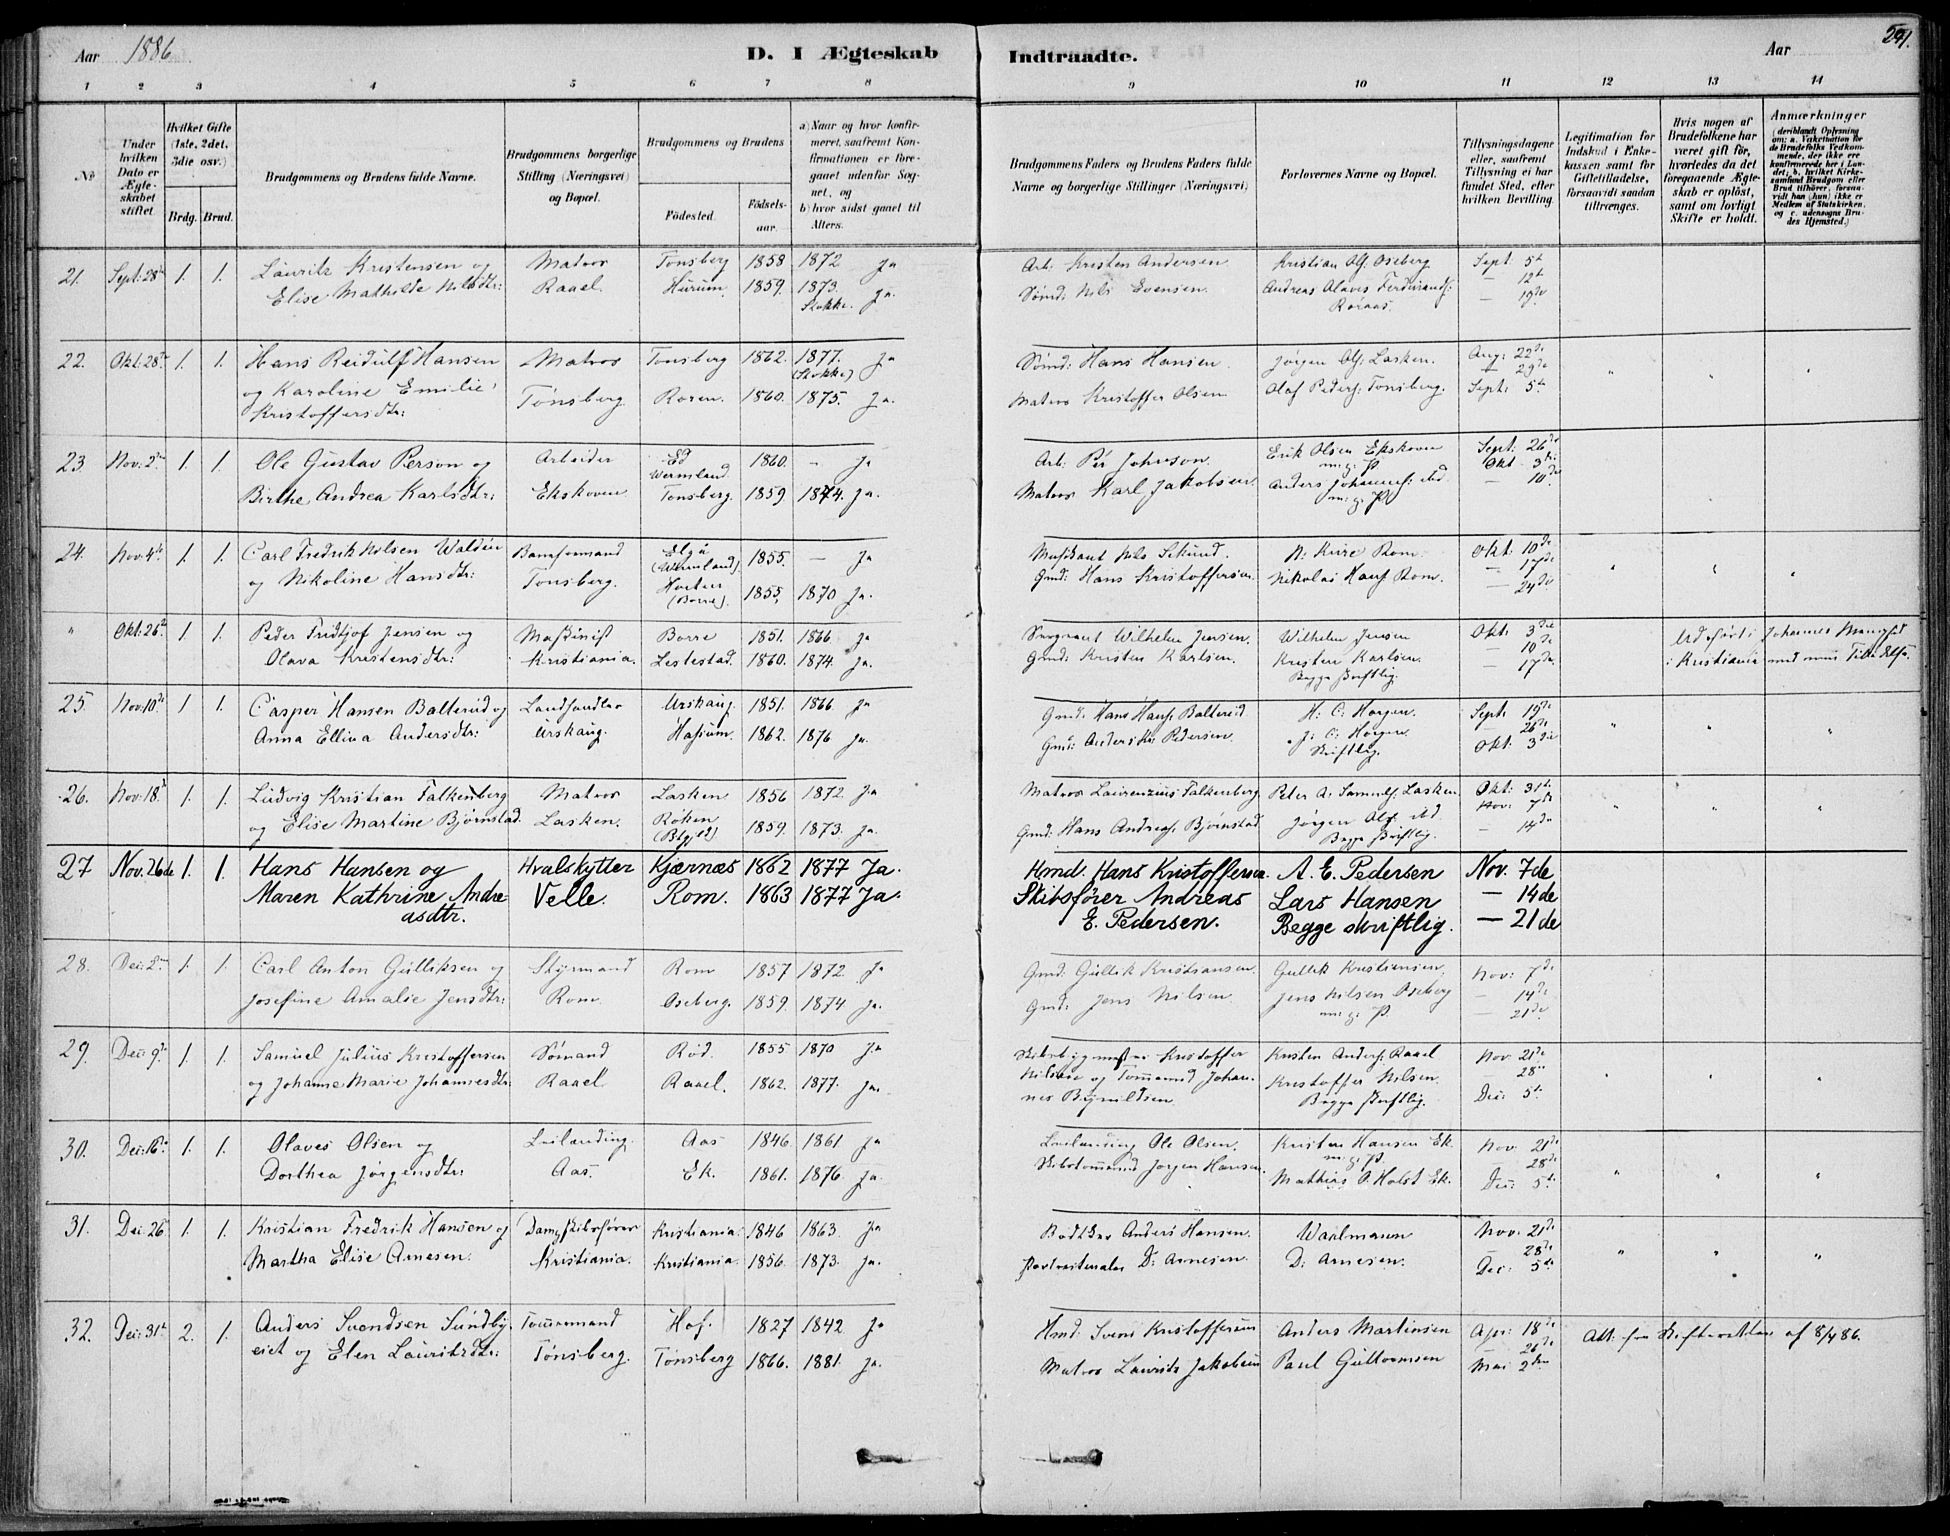 Aar 1886 D. I Ægteskab Indtraadte. Aar 291.
1 2 3 4 5 6 7 8 9 10 11 12 13 14
No
Under hvilken Dato er Ægteskabet stiftet
Hvilket Gifte (1ste, 2det, 3die osv.)
Brdg. Brud.
Brudgommens og Brudens fulde Navne.
Brudgommens borgerlige Stilling (Næringsvei) og Bopæl.
Brudgommens og Brudens
Fødested. Fødselsaar.
a) Naar og hvor konfirmeret, saafremt Konfirmationen er foregaaet udenfor Sognet, og
b) hvor sidst gaaet til Alters.
Brudgommens Faders og Brudens Faders fulde Navne og borgerlige Stillinger (Næringsvei)
Forlovernes Navne og Bopæl.
Tillysningsdagene eller, saafremt Tillysning ei har fundet Sted, efter hvilken Bevilling.
Legitimation for Indskud i Enkekassen samt for Giftetilladelse, forsaavidt saadan tiltrænges.
Hvis nogen af Brudefolkene har været gift før, hvorledes da det foregaaende Ægteskab er opløst, samt om lovligt Skifte er holdt.
Anmærkninger
21. Sept: 28 1. 1. Lauritz Kristensen og Matros Tønsberg 1858 1872 Ja Arb: Kristen Andersen Kristian Olf: Oseberg Sept. 5t
Elise Mathilde Nilsdtr: Raael. Hurum. 1859. 1873. Stokke. Ja. Sømd: Nils Evensen. Andreas Olaves Ferdinands: Røraas. — 12t — 19de
22. Okt: 28 1. 1. Hans Reidulf Hansen Matros Tønsberg 1862. 1877. (Stokke) Ja Sømd: Hans Hansen. Jørgen Olf: Lasken. Aug: 22de — 29de
og Karoline Emilie Kristoffersdtr: Tønsberg Roren. 1860. 1875. Ja. Matros Kristoffer Olsen Olaf Peders: Tønsberg. Sept: 5t
23. Nov: 2 1. 1. Ole Gustav Person og Arbeider Ed Wermland. 1860. — Ja Arb: Per Johnson. Erik Olsen Ekskoven m: g: P. Sept: 26de Okt — 3
Birthe Andrea Karlsdtr: Ekskoven Tønsberg. 1859 1874. Ja. Matros Karl Jakobsen Anders Johannes: ibd m: g: P. — 10de
24. Nov: 4 1. 1. Carl Fredrik Nilsen Walden (Wermland) 1855. — Ja Nils N: Rom Okt: 10de — 17de
og Nikoline Hansdtr: Tønsberg. Horten (Borre). 1855. 1870 Ja. Gmd: Hans Kristoffersen. Nikolai Hans: Rom. — 24de
" Okt: 26 1. 1. Peder Fridtjof Jensen og Maskinist Borre 1851. 1866. Ja Sergeant Wilhelm Jensen. Wilhelm Jensen Okt: 3die — 10de Udført i Johannes Menighed
Olava Kristensdtr: Kristiania. Lestestad. 1860. 1874. Ja. Gmd: Kristen Karlsen. Kristen Karlsen. Begge skriftlig. — 17de i Kristiania med min
25. Nov: 10 1 1. Casper Hansen Balterud og Landhandler Urskaug. 1851. 1866 Ja Gmd: Hans Hans: Balterud H: C: Horgen. Sept: 19de — 26de
Anna Ellina Andersdtr: Urskaug. Hasum. 1862. 1876 Ja. Gmd: Anders Pedersen J: C: Horgen. Skriftlig. Okt: 3die
26. Nov: 18 1. 1. Ludvig Kristian Falkenberg Matros Lasken 1856 1872. Ja Matros Laurenzius Falkenberg Peter A: Samuels: Lasken Okt: 31te Nov: 7de
og Elise Martine Bjørnstad. Lasken. Røken 1859. 1873. Ja. Gmd: Hans Andreas: Bjørnstad Jørgen Olf: ibd. Begge skriftlig. — 14de
27 Nov. 26de 1. 1. Hans Hansen og Hvalskytter Kjærnæs 1862 1877 Ja. Hmd. Hans Kristoffersen. A. E. Pedersen Nov. 7de
Maren Kathrine Andre- Velle. Rom. 1863 1877 Ja. Skibsfører Andreas Lars Hansen — 14de
asdtr. E. Pedersen. Begge skriftlig. — 21de
28. Dec: 2 1. 1. Carl Anton Gulliksen og Styrmand Rom 1857 1872 Ja Gmd: Gullik Kristiansen. Gullik Kristiansen. Nov: 7de
Josefine Amalie Jensdtr: Rom. Oseberg. 1859. 1874 Ja. Gmd: Jens Nilsen. Jens Nilsen Oseberg m: g: P. — 14de — 21de
29. Dec: 9 1. 1. Samuel Julius Kristoffersen Sømand Rød. 1855 1870 Ja Skibsbygmester Kristoffer Kristen Anders: Raael Nov: 21de — 28
og Johanne Marie Johannesdtr: Raael. Raael. 1862. 1877. Ja. Nilsen og Tømmermd Johannes Kristoffer Nilsen. Begge skriftlig. Dec: 5t
30. Dec: 16 1. 1. Olaves Olsen og Leilending. Aas 1846 1861 Ja Leilending Ole Olsen. Kristen Hansen Ek. m: g: P. Nov: 21de — 28de
Dorthea Jørgensdtr: Aas. Ek. 1861. 1876. Ja. Skibstømmermd Jørgen Hansen. Mathias P. Holst Ek. Dec: 5t
31. Dec: 26 1. 1. Kristian Fredrik Hansen og Dampskibsfører Kristiania. 1846 1863. Ja Bødker Anders Hansen. Warlmann Nov: 21de — 28de
Martha Elise Arnesen. Kristiania. Kristiania. 1856. 1873. Ja. Portraitmaler D: Arnesen. D: Arnesen. Dec: 5te
32. Dec: 31 2. 1. Anders Svendsen Sundby- Tømmermand Hof. 1827 1842 Ja Hmd: Svend Kristoffersen Anders Martinsen Apr: 18de — 26de Att: fra Skifteretten af 8/4 86.
eiet og Elen Lauritzdtr: Tønsberg. Tønsberg 1866. 1881. Ja. Matros Lauritz Jakobsen Paul Guttormsen Mai 2den